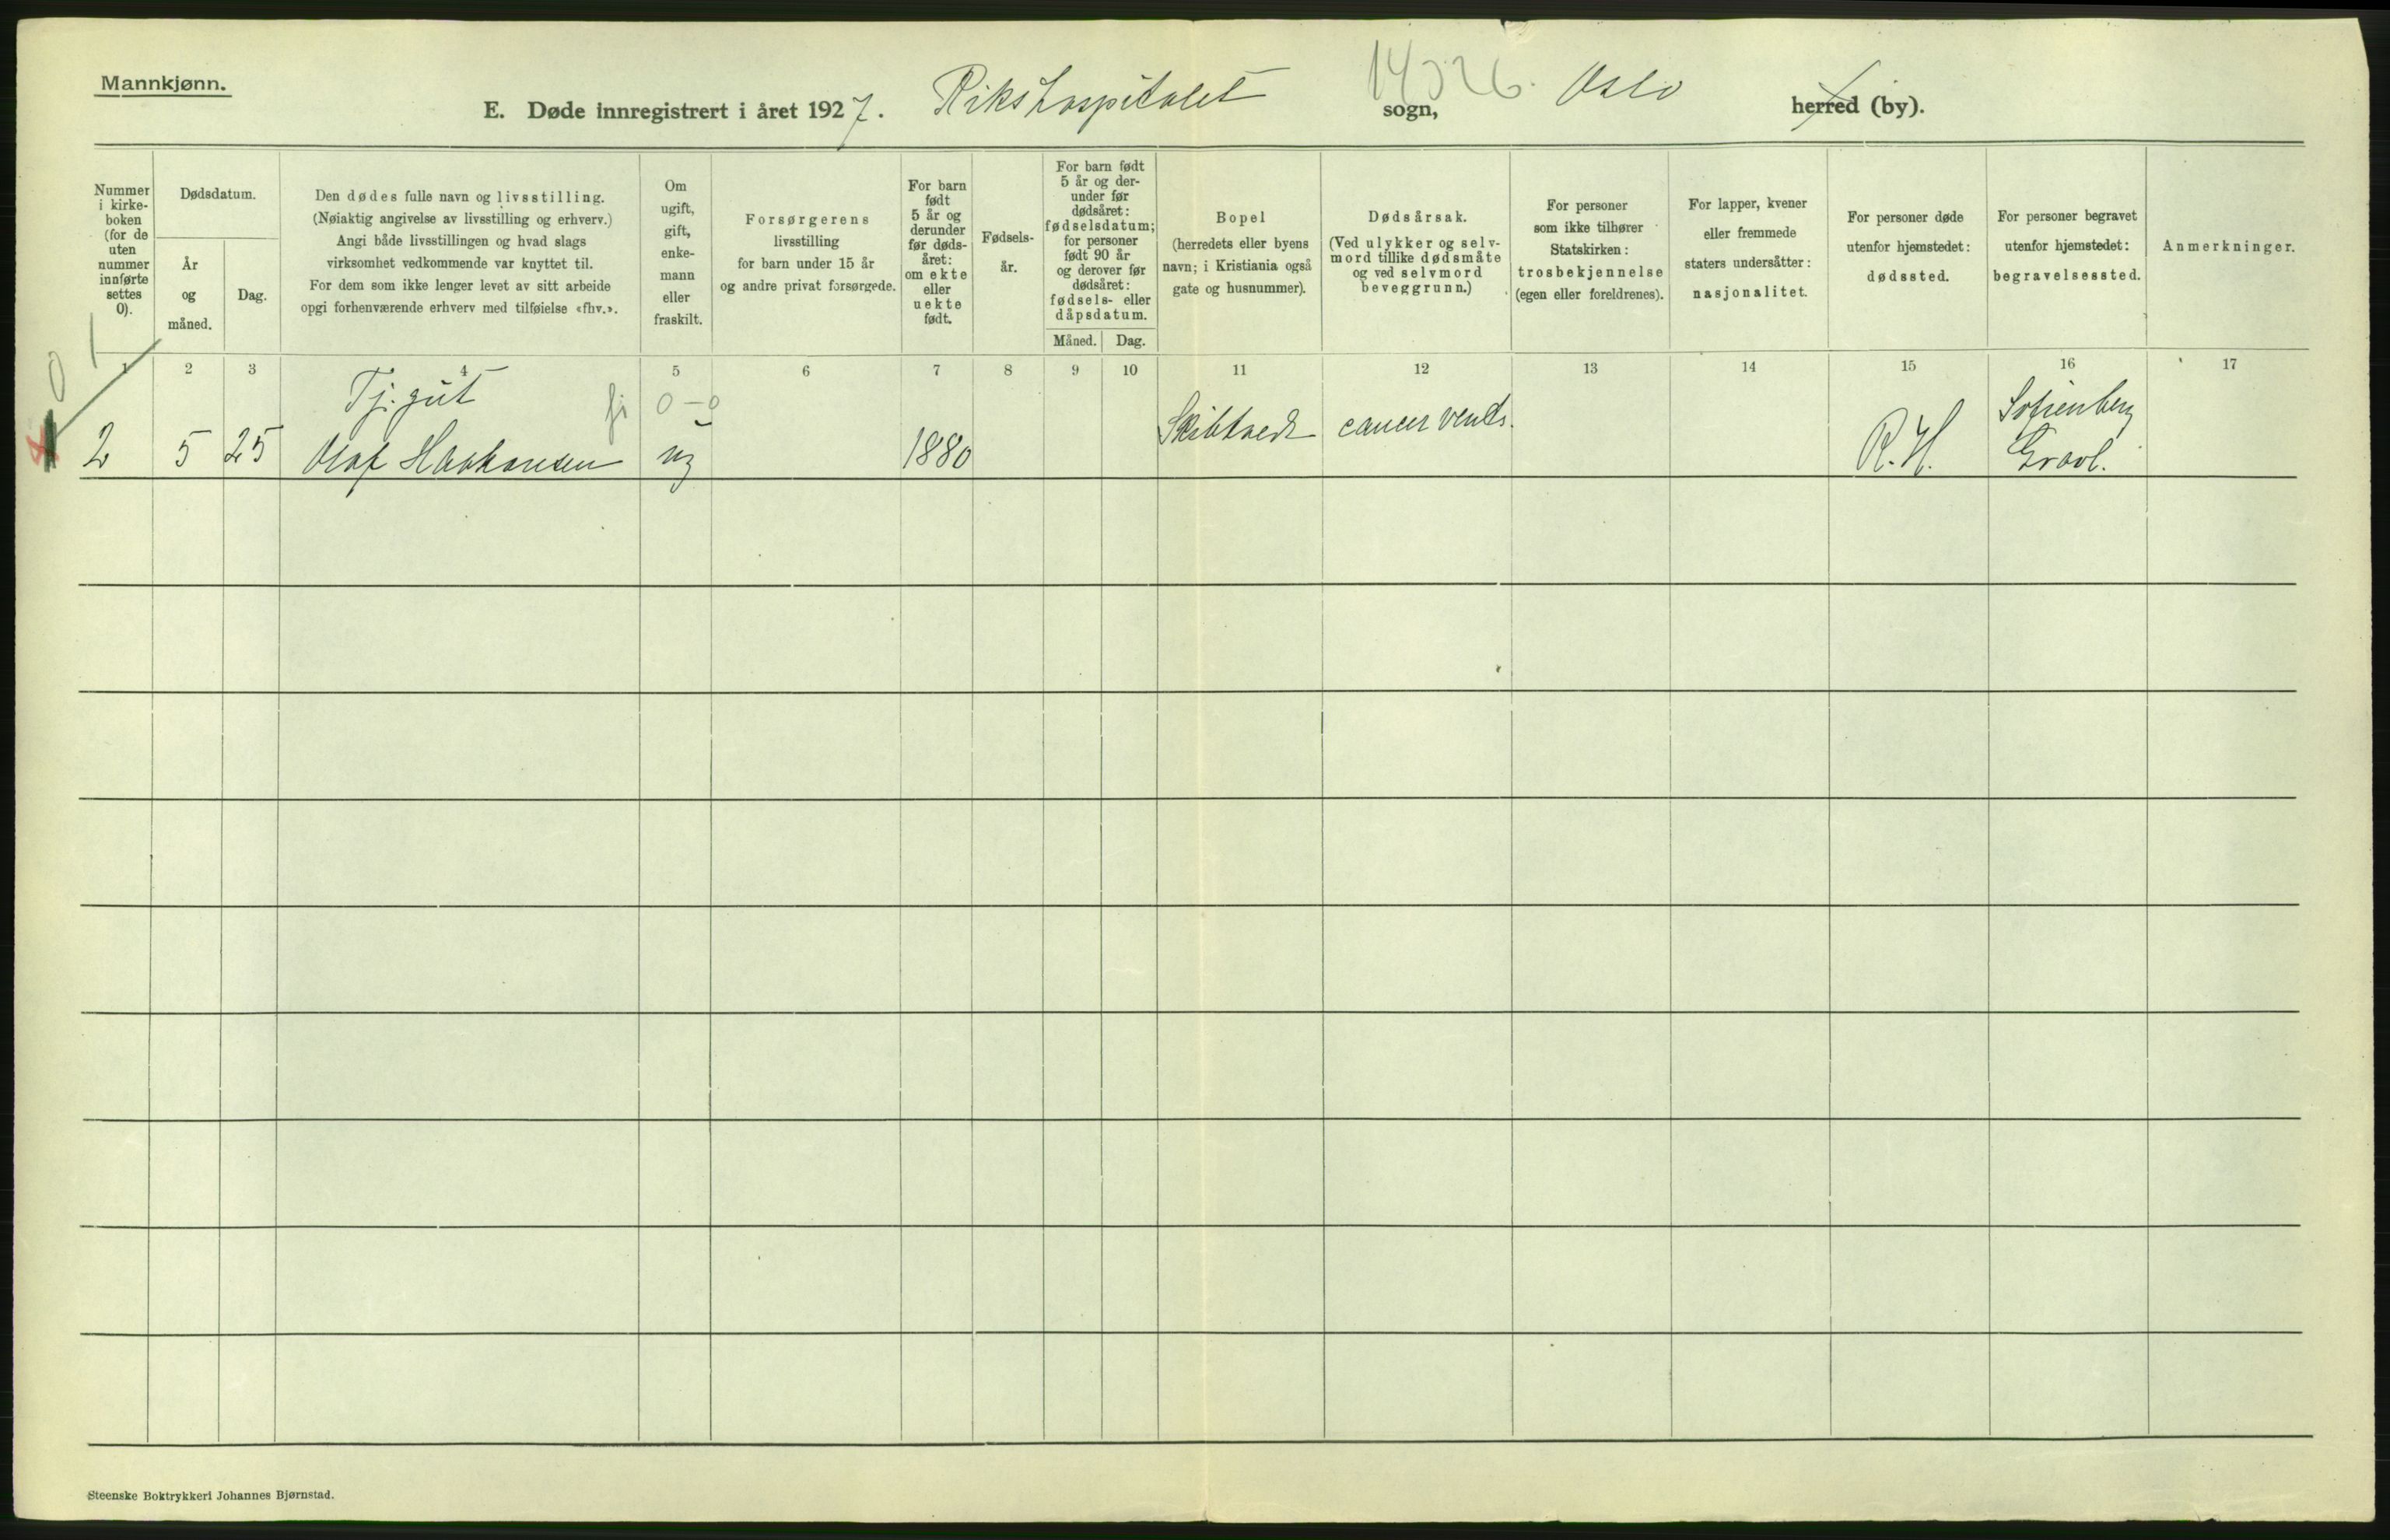 Mannkjønn.
E. Døde innregistrert i året 1927. Rikshospitalet sogn, Oslo herred (by).
14326.
Nummer i kirke-boken (for de uten nummer innførte settes 0).
Dødsdatum.
År og måned.
Dag.
Den dødes fulle navn og livsstilling.
(Nøiaktig angivelse av livsstilling og erhverv.)
Angi både livsstillingen og hvad slags
virksomhet vedkommende var knyttet til.
For dem som ikke lenger levet av sitt arbeide
opgi forhenværende erhverv med tilføielse «fhv.».
Om ugift, gift, enke-mann eller fraskilt.
Forsørgerens
livsstilling
for barn under 15 år
og andre privat forsørgede.
For barn født 5 år og derunder før døds-året: om ekte eller uekte født.
Fødsels-år.
For barn født 5 år og der-under før dødsåret: fødselsdatum; for personer født 90 år og derover før dødsåret: fødsels- eller dåpsdatum.
Måned. Dag.
Bopel
(herredets eller byens
navn; i Kristiania også
gate og husnummer).
Dødsårsak.
(Ved ulykker og selv-
mord tillike dødsmåte
og ved selvmord
beveggrunn.)
For personer
som ikke tilhører
Statskirken:
trosbekjennelse
(egen eller foreldrenes).
For lapper, kvener
eller fremmede
staters undersåtter:
nasjonalitet.
For personer døde
utenfor hjemstedet:
dødssted.
For personer begravet
utenfor hjemstedet:
begravelsessted.
Anmerkninger.
1 2 3 4 5 6 7 8 9 10 11 12 13 14 15 16 17
0 1
Tj. gut 0-0
2 5 25 Olaf Haakonsen ug 1880 Skibtvedt cancer ventr. R. H. Sofienberg
Gravl.
Steenske Boktrykkeri Johannes Bjørnstad.